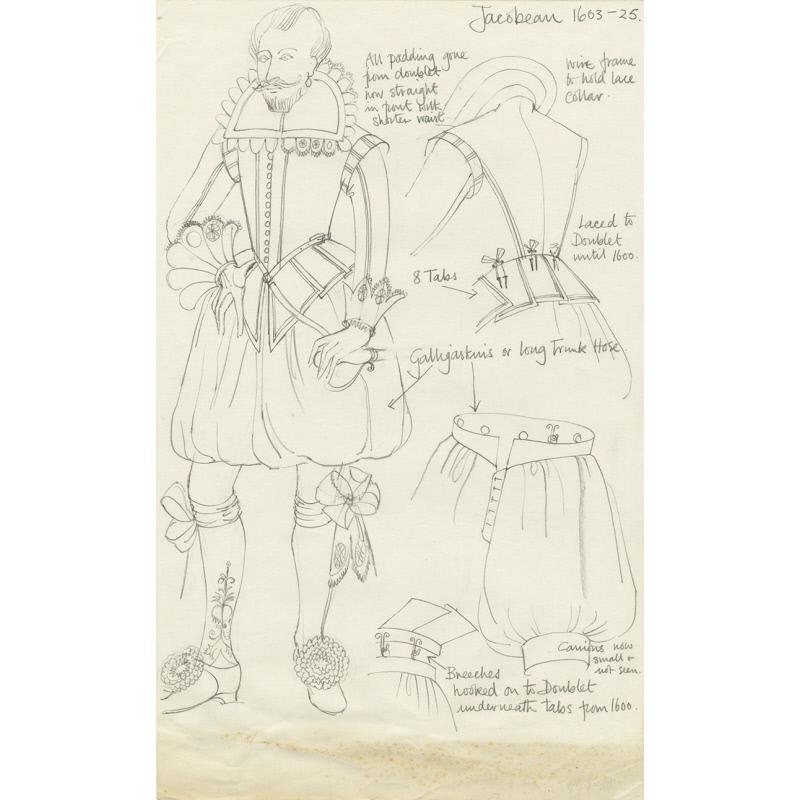 Jacobean 1603-25.
All padding gone
from doublet
now straight
in front with
shorter waist
Wire frame
to hold lace
Collar.
Laced to
Doublet
until 1600.
8 Tabs
Galligaskins or long Trunk Hose.
Canions now
small +
not seen.
Breeches
hooked on to Doublet
underneath tabs from 1600.